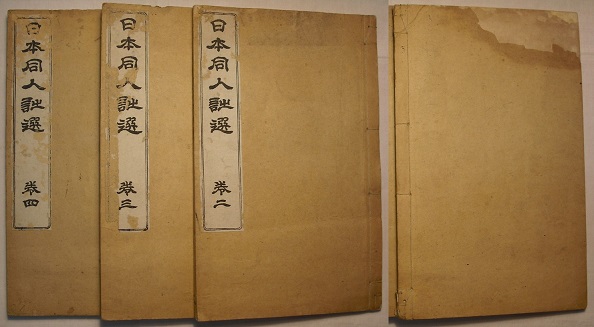 日本同人詩選 卷二
日本同人詩選 卷三
日本同人詩選 卷四